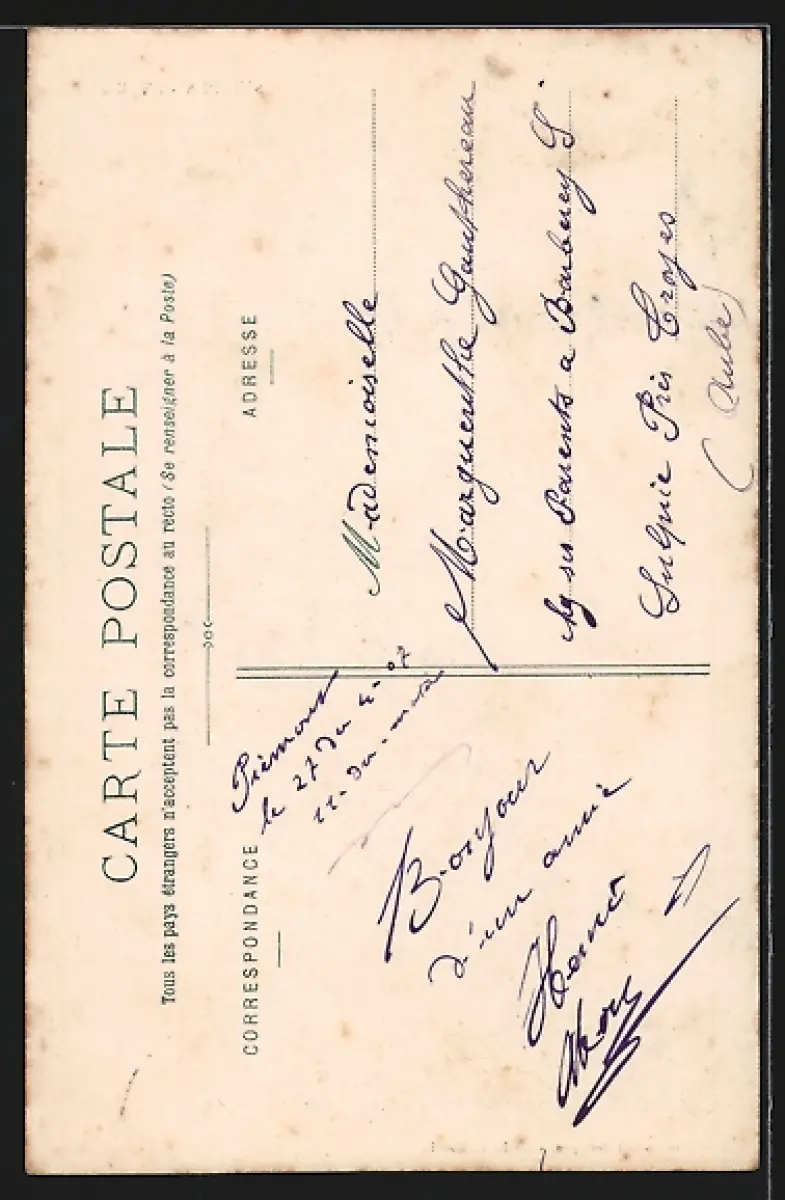 CARTE POSTALE
Tous les pays étrangers n'acceptent pas la correspondance au recto (Se renseigner à la Poste)
CORRESPONDANCE
le 27 du
Bonjour
d'un amie
ADRESSE
Mademoiselle
Marguerithe Gauthereau
ses Parents a Barberey S
Sulpice Près Troyes
(Aube)